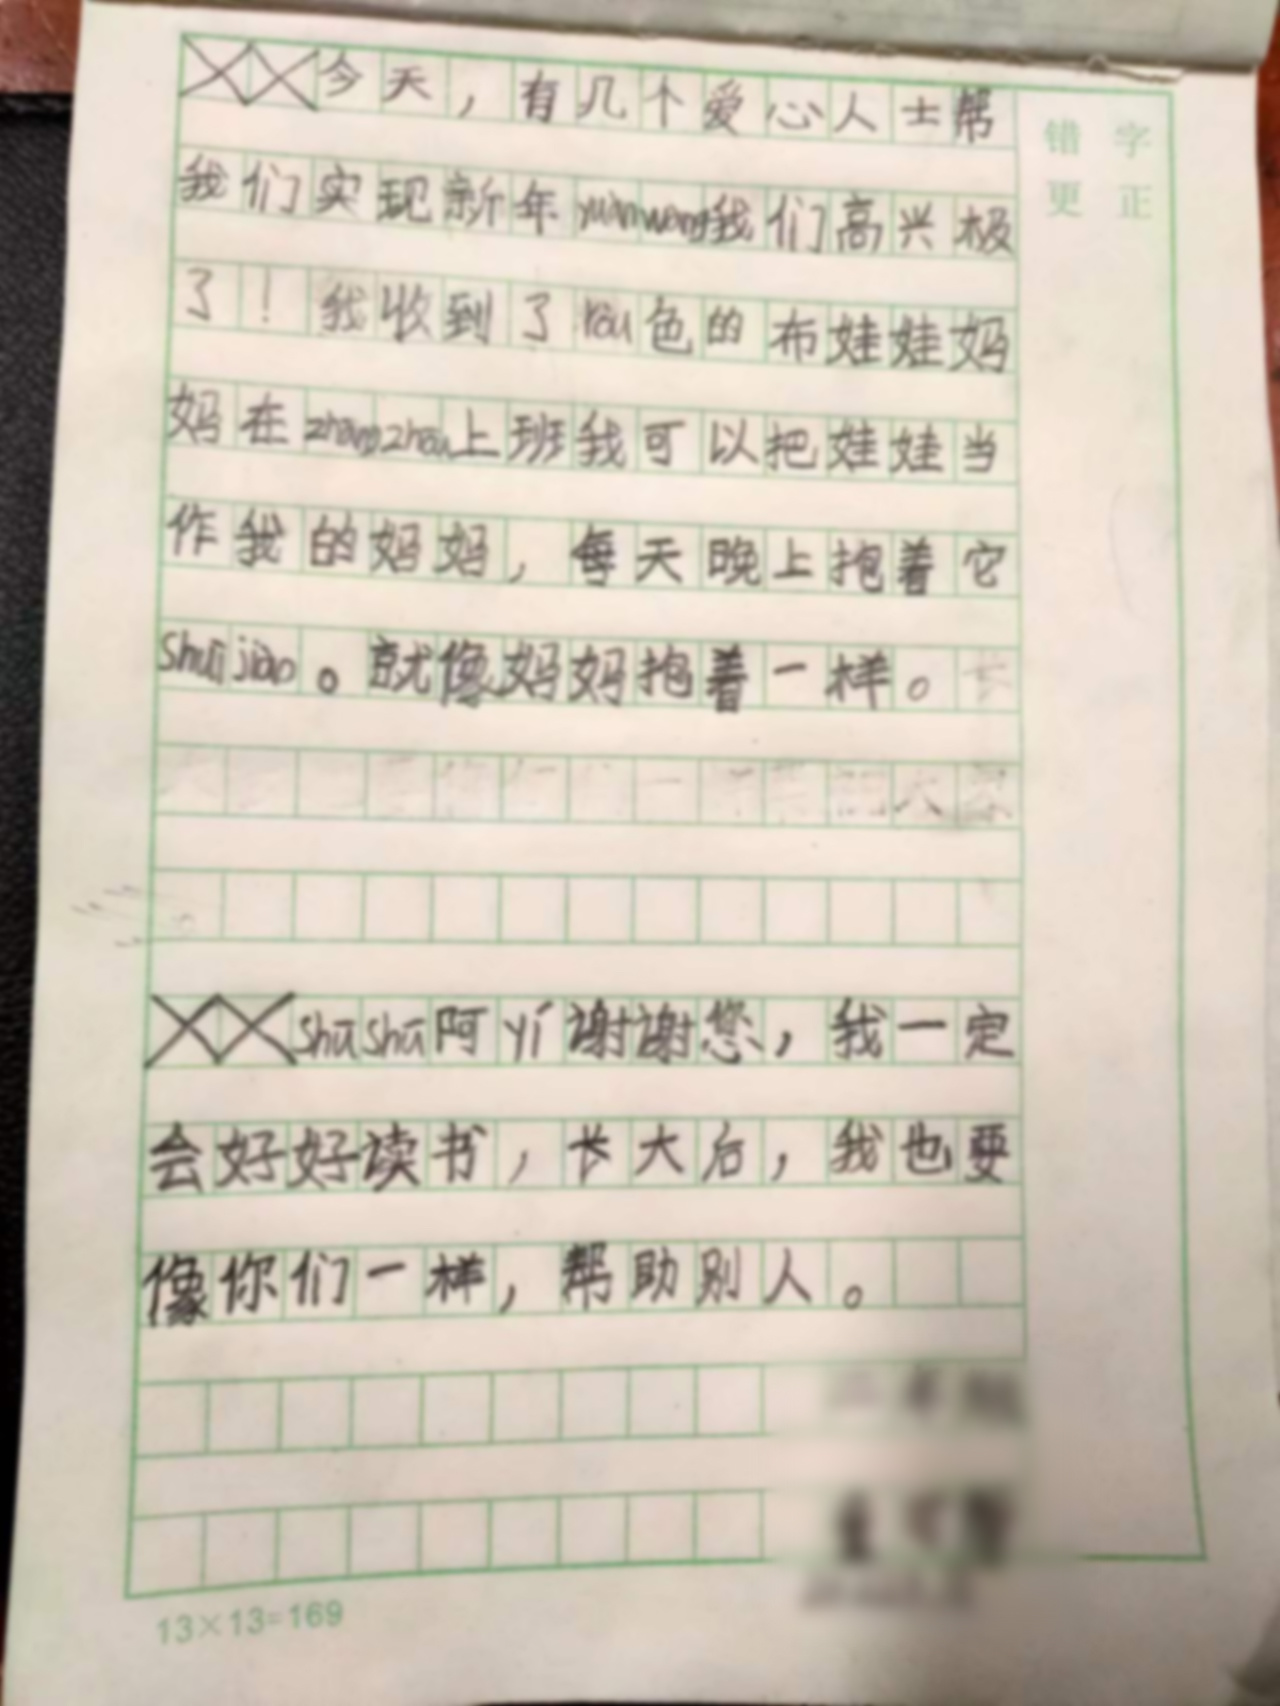 今天，有几个爱心人士帮
我们实现新年yuànwàng我们高兴极
了！我收到了ròu色的布娃娃妈
妈在zhangzhou上班我可以把娃娃当
作我的妈妈，每天晚上抱着它
shuìjiào。就像妈妈抱着一样。
shūshū阿yí谢谢您，我一定
会好好读书，长大后，我也要
像你们一样，帮助别人。
错字
更正
13×13=169